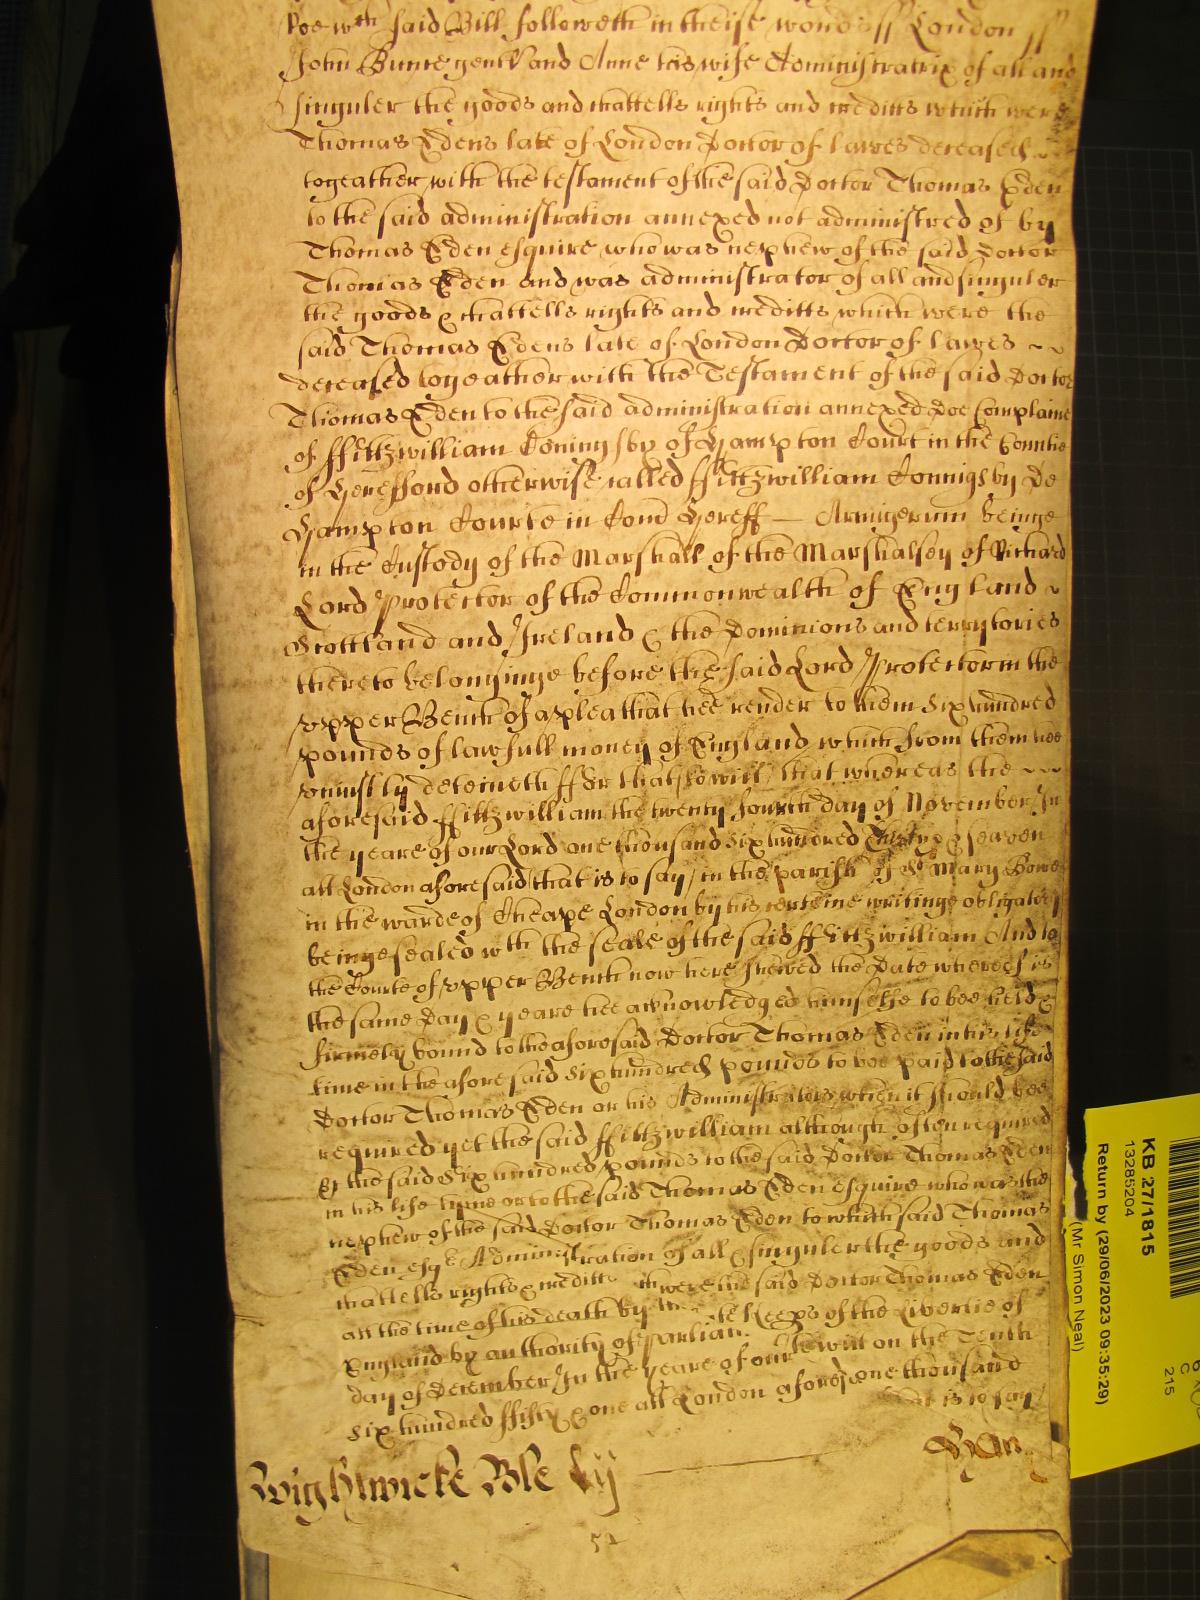 Roe wth said Bill followeth in theise words ss London ss
John Bunce gent and Anne his wife Administratrix of all and
singuler the goods and chattells rights and creditts which were
Thomas Edens late of London Doctor of lawes deceased
togeather with the testament of the said Doctor Thomas Eden
to the said administration annexed not administred of by
Thomas Eden esquire who was nephew of the said Doctor
Thomas Eden and was administrator of all and singuler
the goods & chattells rights and creditts which were the
said Thomas Edens late of London Doctor of lawes
deceased togeather with the Testament of the said Doctor
Thomas Eden to the said administration annexed doe Complaine
of ffittzwilliam Coningsby of Hampton Court in the Countie
of Herefford otherwise called ffittzwilliam Connigsby de
Hampton Courte in Com Hereff Armigerum beinge
in the Custody of the Marshall of the Marshalsey of Richard
Lord Protector of the Commonwealth of England
Scottland and Ireland & the Dominions and terrytories
thereto belonginge before the said Lord Protector in the
upper Bench of a plea that hee render to them six hundred
pounds of lawfull money of England which from them hee
uniustly deteineth ffor that (to wit) that whereas the
aforesaid ffittzwilliam the twenty fourth day of November In
the yeare of our Lord one thousand six hundred Thirty & seaven
att London aforesaid that is to say in the parish of St Mary Bowe
in the warde of Cheape London by his certeine writinge obligatory
beinge sealed wth the seale of the said ffittzwilliam And to
the Courte of upper Bench now here shewed the Date whereof is
the same Day & yeare hee acknowledged himselfe to bee held &
firmely bound to the aforesaid Doctor Thomas Eden in his life
time in the aforesaid six hundred pounds to bee paid to the said
Doctor Thomas Eden or his Administrators when it should bee
required yet the said ffittzwilliam although often required
the said six hundred pounds to the said Doctor Thomas Eden
in his life tyme or to the said Thomas Eden esquire who was the
nephew of the said Doctor Thomas Eden to which said Thomas
Eden esqr Administration of all & singuler the goods and
chattells rights & creditts were the said Doctor Thomas Eden
att the time of his death by the Keeps of the Libertie of
England by authority of Parliam
day of December In the yeare of our on the Tenth
six hundred ffifty & one att London aforesd one thousand
that is to say
Wightwicke Ble
52
KB 27/1815
13285204
Return by (29/06/2023 09:35:29)
(Mr Simon Neal)
C
215